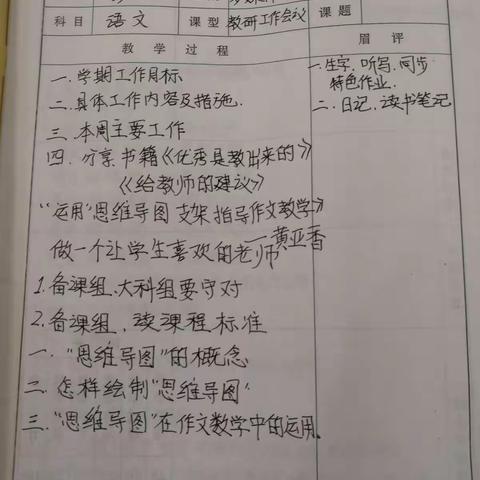 科目 语文 课型 教研工作会议 课题
教学过程 眉评
一.学期工作目标
二.具体工作内容及措施.
三.本周主要工作
四.分享书籍《优秀是教出来的》
《给教师的建议》
“运用”思维导图支架指导作文教学》
一黄亚香
做一个让学生喜欢的老师
1.备课组.大科组要守对
2.备课组、读课程标准
一.“思维导图”的概念
二.怎样绘制“思维导图”
三.“思维导图”在作文教学中的运用。
一.生字.听写.同步
特色作业.
二.日记.读书笔记